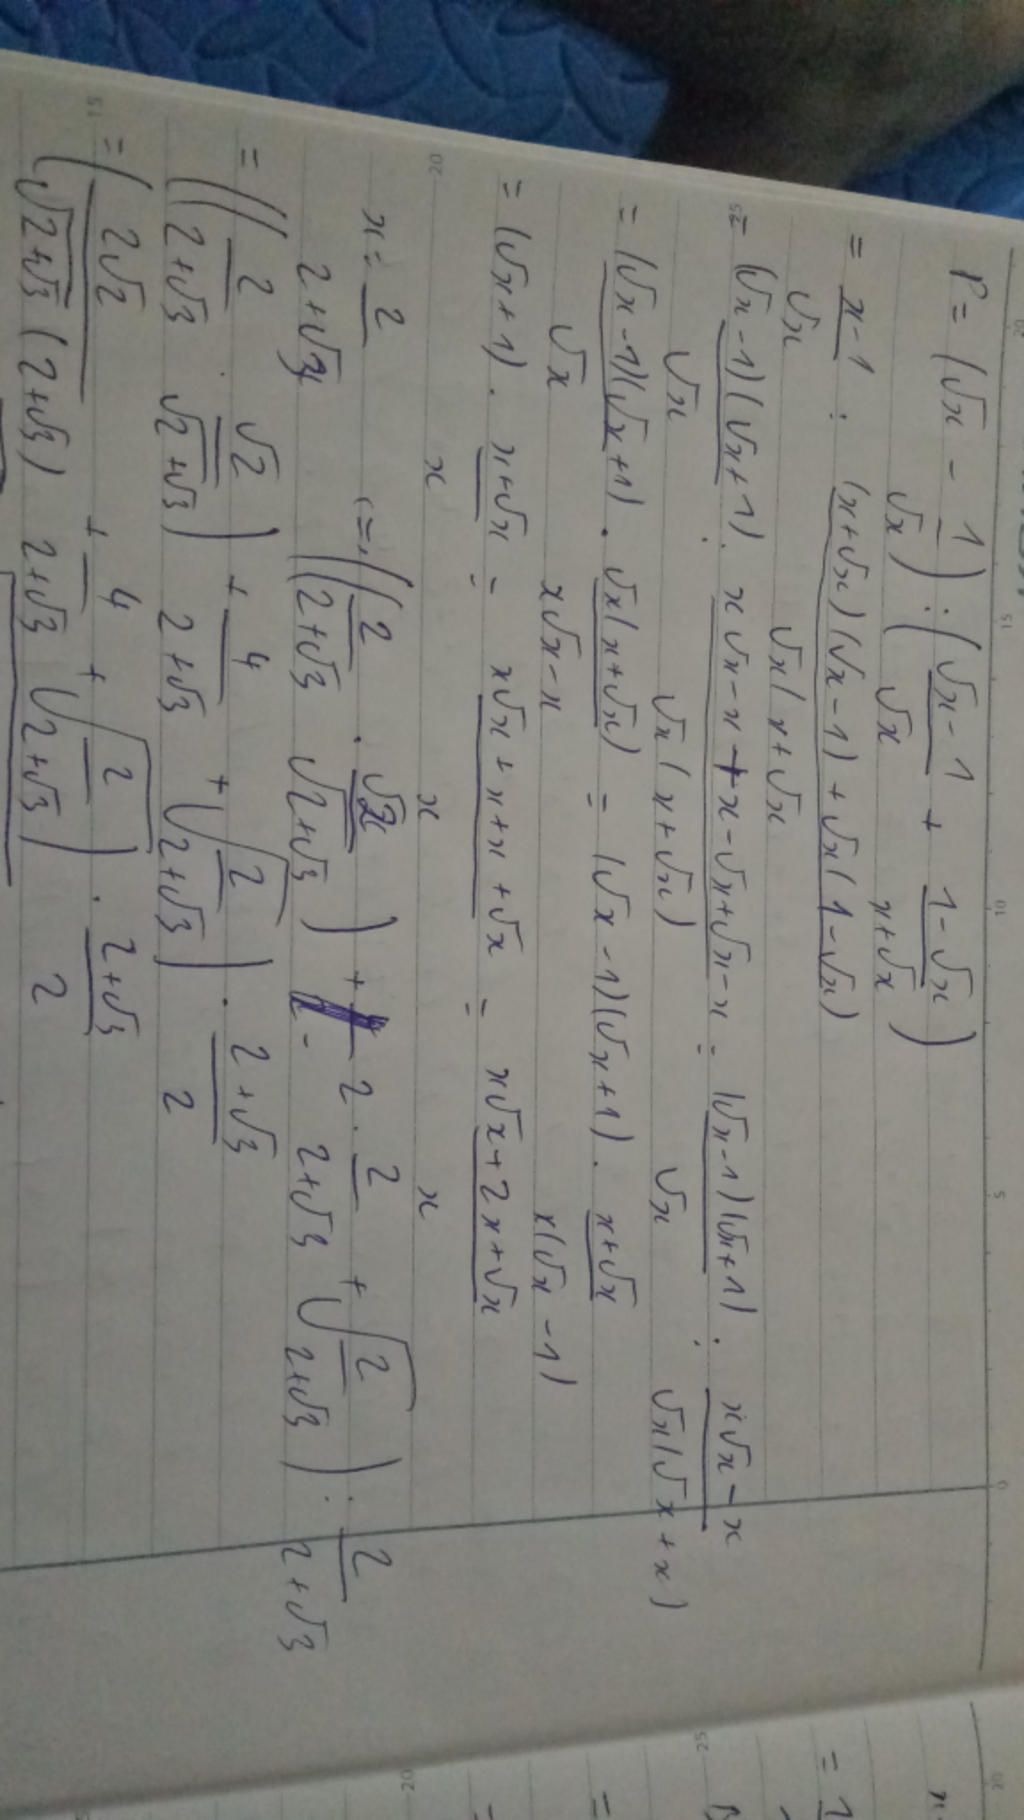 P = (√x - 1/√x) : (√x-1/√x + 1-√x/x+√x)
= x-1/√x : (x+√x)(√x-1)+√x(1-√x)/√x(x+√x
= (√x-1)(√x+1)/√x : x√x-x+x-√x+√x-x/√x(x+√x) = (√x-1)(√x+1)/√x : x√x-x/√x(√x+x)
= (√x-1)(√x+1)/√x . √x(x+√x)/x√x-x = (√x-1)(√x+1) . x+√x/x(√x-1)
= (√x+1) . x+√x/x = x√x+x+x+√x/x = x√x+2x+√x/x
x = 2/2+√3 (=) ((2/2+√3 . √2/√2+√3) + 2 . 2/2+√3 + √2/2+√3) : 2/2+√3
= ((2/2+√3 . √2/√2+√3) + 4/2+√3 + √2/2+√3) . 2+√3/2
= (2√2/√2+√3(2+√3) + 4/2+√3 + √2/2+√3) . 2+√3/2